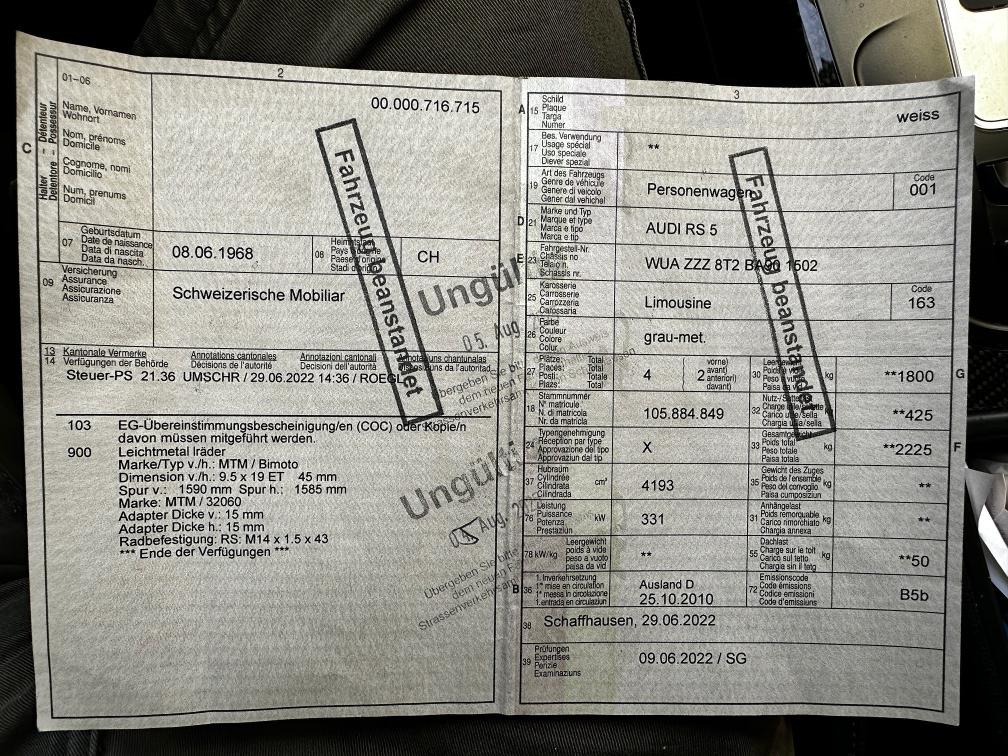 2
01–06
00.000.716.715
C
Halter Détenteur
Detentore Possessur
Name, Vornamen
Wohnort
Nom, prénoms
Domicile
Cognome, nomi
Domicilio
Num, prenums
Domicil
07
Geburtsdatum
Date de naissance
Data di nascita
Data da nasch.
08.06.1968
08
CH
09
Versicherung
Assurance
Assicurazione
Assicuranza
Schweizerische Mobiliar
13
14
Kantonale Vermerke
Verfügungen der Behörde
Annotations cantonales
Décisions de l'autorité
Annotazioni cantonali
Decisioni dell'autorità
Steuer-PS 21.36 UMSCHR / 29.06.2022 14:36 / ROEGL
103 EG-Übereinstimmungsbescheinigung/en (COC) oder Kopie/n
davon müssen mitgeführt werden.
900 Leichtmetallräder
Marke/Typ v./h.: MTM / Bimoto
Dimension v./h.: 9.5 x 19 ET 45 mm
Spur v.: 1590 mm Spur h.: 1585 mm
Marke: MTM / 32060
Adapter Dicke v.: 15 mm
Adapter Dicke h.: 15 mm
Radbefestigung: RS: M14 x 1.5 x 43
*** Ende der Verfügungen ***
Fahrzeug beanstandet
Ungül
05. Aug.
Übergeben Sie bi
dem neuen
Strassenverkehrsan
Ungülti
Aug. 2
Übergeben Sie bitte
dem neuen
Strassenverkehrsant
3
A 15
Schild
Plaque
Targa
Numer
weiss
17
Bes. Verwendung
Usage spécial
Uso speciale
Diever spezial
**
19
Art des Fahrzeugs
Genre de véhicule
Genere di veicolo
Gener dal vehichel
Personenwagen
Code
001
D 21
Marke und Typ
Marque et type
Marca e tipo
Marca e tip
AUDI RS 5
E 23
Fahrgestell-Nr.
Châssis no
Telaio n.
Schassis nr.
WUA ZZZ 8T2 BA90 1502
25
Karosserie
Carrosserie
Carrozzeria
Carossaria
Limousine
Code
163
26
Farbe
Couleur
Colore
Colur
grau-met.
27
Plätze: Total
Places: Total
Posti: Totale
Plazs: Total
4
2
vorne)
avant)
anteriori)
davant)
30
kg
**1800
G
18
Stammnummer
N° matricule
N. di matricola
Nr. da matricla
105.884.849
32
kg
**425
24
Typengenehmigung
Réception par type
Approvazione del tipo
Approvaziun dal tip
X
33
Gesamtgewicht
Poids total
Peso totale
Paisa totala
kg
**2225
F
37
Hubraum
Cylindrée
Cilindrata
Cilindrada
cm³
4193
35
Gewicht des Zuges
Poids de l'ensemble
Peso del convoglio
Paisa cumposiziun
kg
**
76
Leistung
Puissance
Potenza
Prestaziun
kW
331
31
Anhängelast
Poids remorquable
Carico rimorchiato
Chargia annexa
kg
**
78 kW/kg
Leergewicht
poids à vide
peso a vuoto
paisa da vid
**
55
Dachlast
Charge sur le toit
Carico sul tetto
Chargia sin il tetg
kg
**50
B 36
1. Inverkehrsetzung
1re mise en circulation
1a messa in circolazione
1. entrada en circulaziun
Ausland D
25.10.2010
72
Emissionscode
Code émissions
Codice emissioni
Code d'emissiuns
B5b
38
Schaffhausen, 29.06.2022
39
Prüfungen
Expertises
Perizie
Examinaziuns
09.06.2022 / SG
Fahrzeug beanstandet